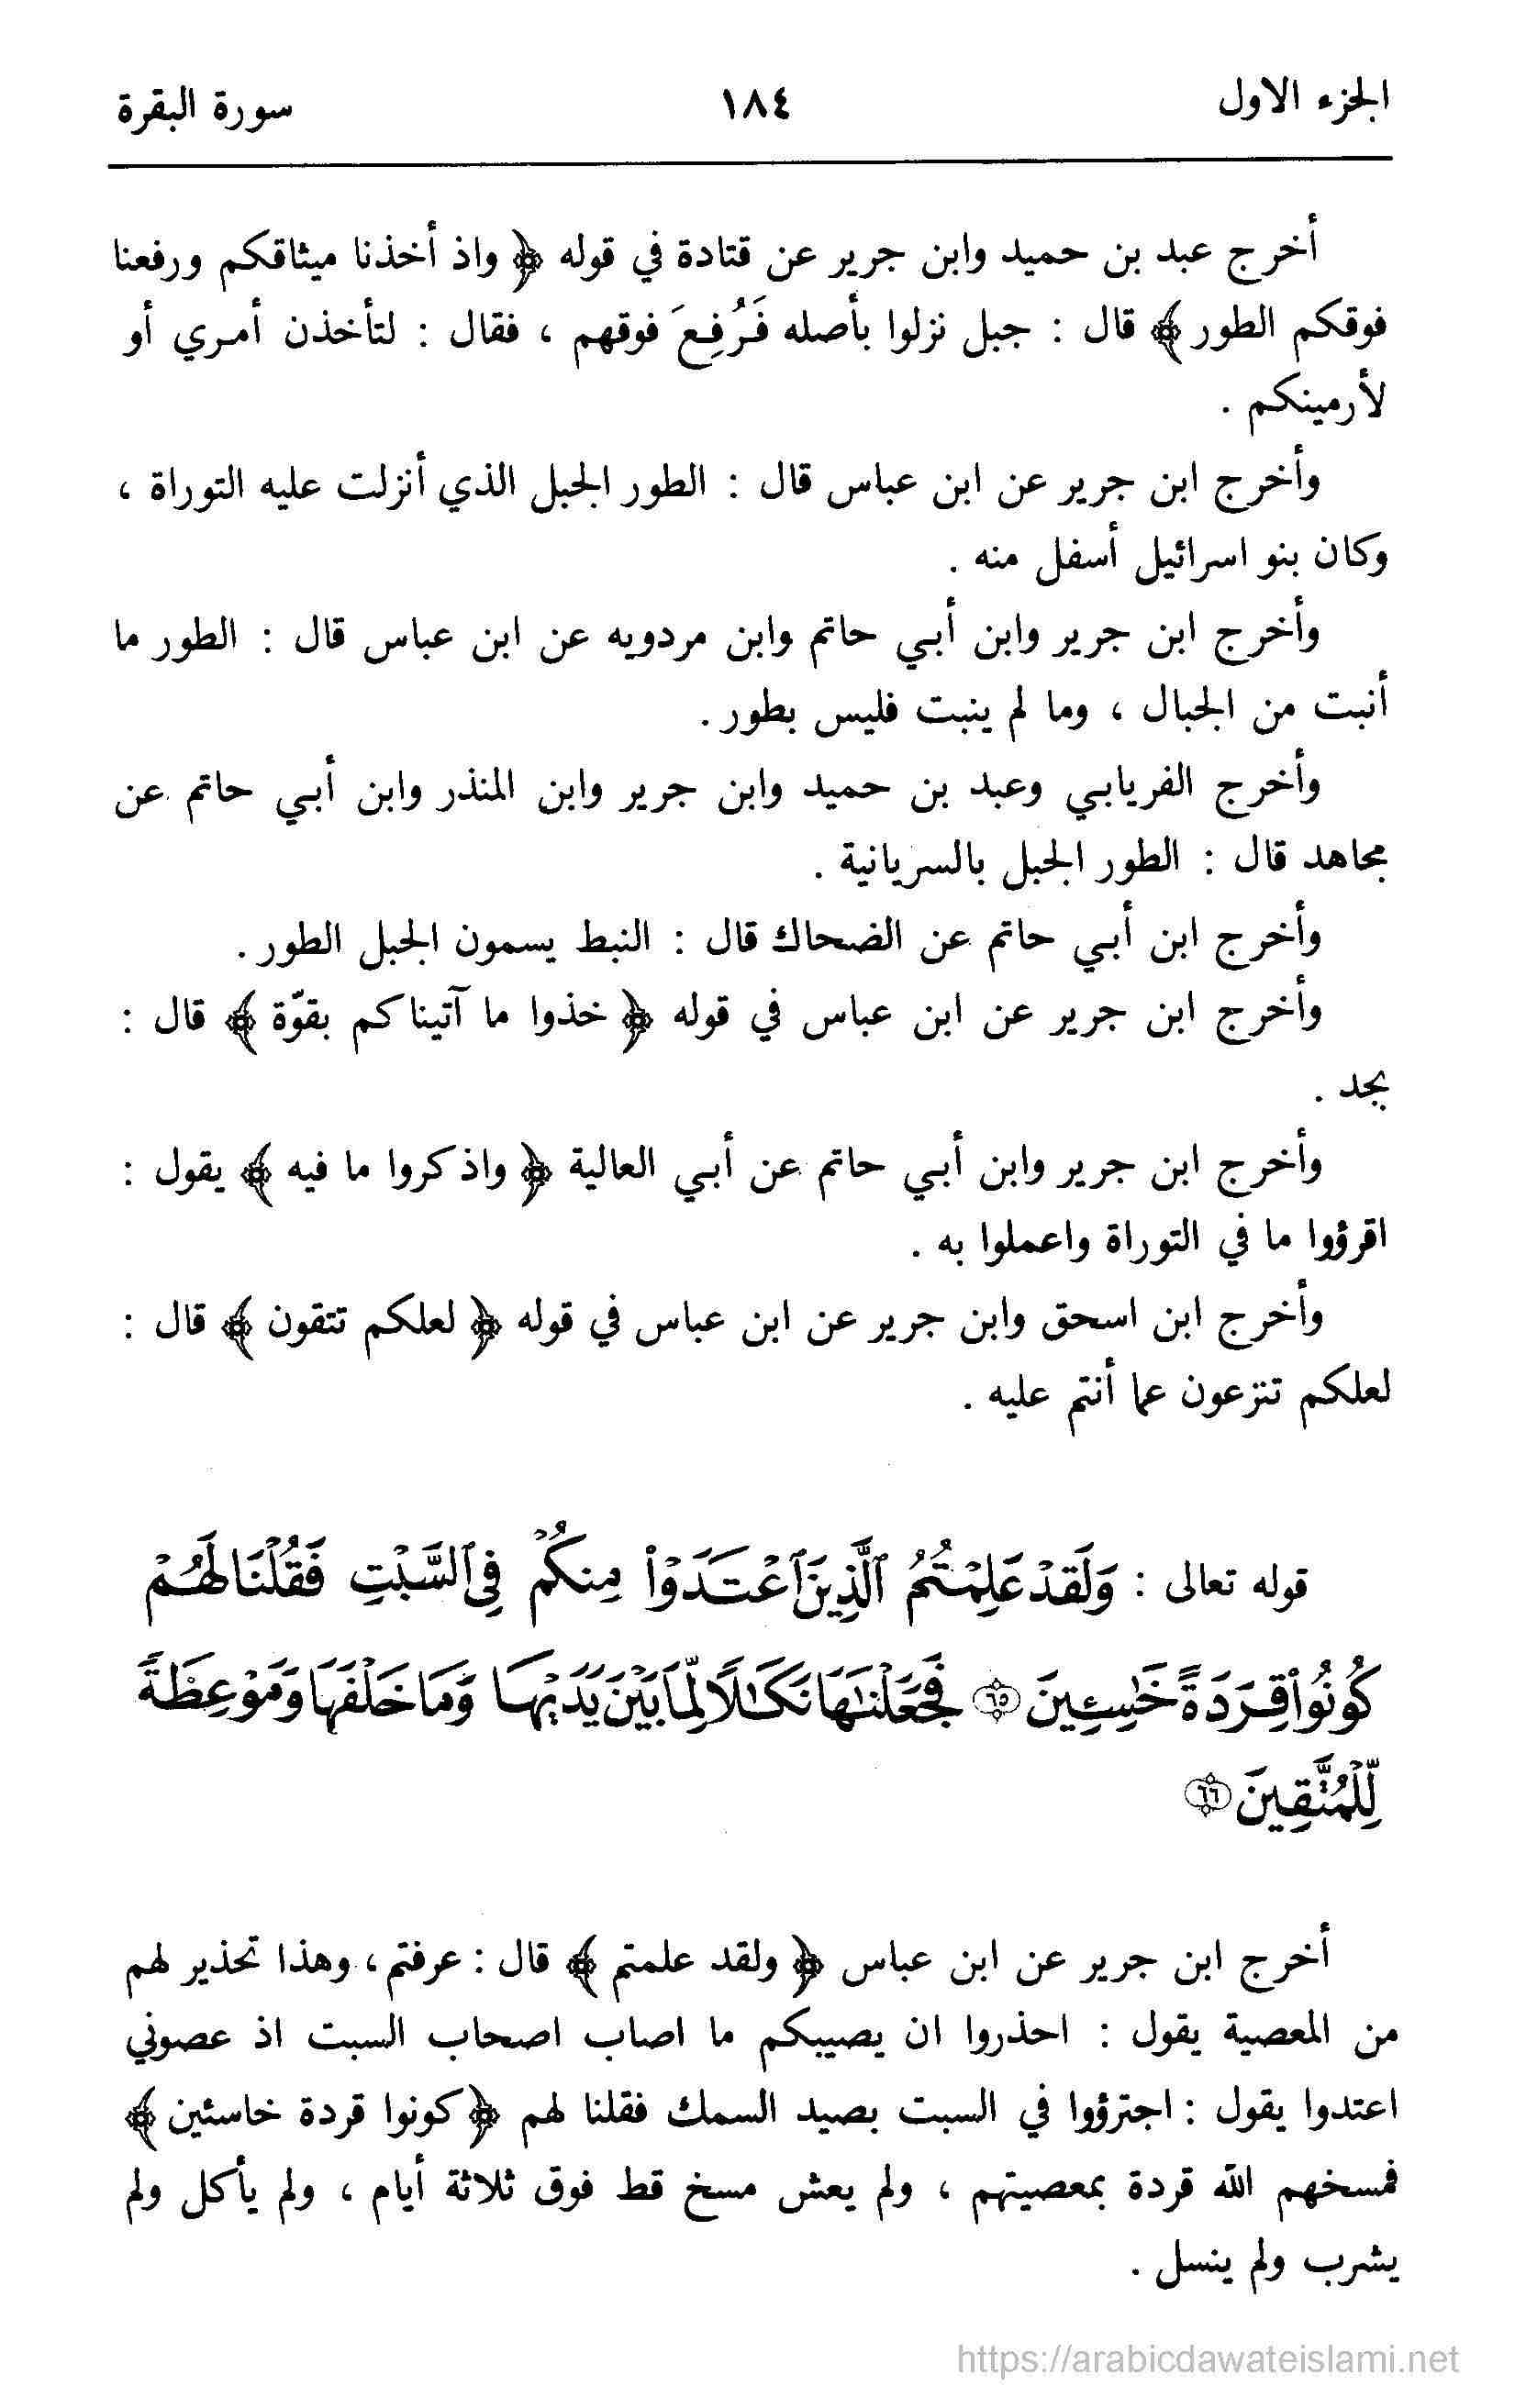 الجزء الاول ١٨٤ سورة البقرة
أخرج عبد بن حميد وابن جرير عن قتادة في قوله ﴿ واذ أخذنا ميثاقكم ورفعنا
فوقكم الطور ﴾ قال : جبل نزلوا بأصله فَرُفِعَ فوقهم ، فقال : لتأخذن أمري أو
لأرمينكم .
وأخرج ابن جرير عن ابن عباس قال : الطور الجبل الذي أنزلت عليه التوراة ،
وكان بنو اسرائيل أسفل منه .
وأخرج ابن جرير وابن أبي حاتم وابن مردويه عن ابن عباس قال : الطور ما
أنبت من الجبال ، وما لم ينبت فليس بطور .
وأخرج الفريابي وعبد بن حميد وابن جرير وابن المنذر وابن أبي حاتم عن
مجاهد قال : الطور الجبل بالسريانية .
وأخرج ابن أبي حاتم عن الضحاك قال : النبط يسمون الجبل الطور .
وأخرج ابن جرير عن ابن عباس في قوله ﴿ خذوا ما آتيناكم بقوّة ﴾ قال :
بجد .
وأخرج ابن جرير وابن أبي حاتم عن أبي العالية ﴿ واذكروا ما فيه ﴾ يقول :
اقرؤوا ما في التوراة واعملوا به .
وأخرج ابن اسحق وابن جرير عن ابن عباس في قوله ﴿ لعلكم تتقون ﴾ قال :
لعلكم تنزعون عما أنتم عليه .
قوله تعالى : وَلَقَدْ عَلِمْتُمُ ٱلَّذِينَ ٱعْتَدَوْا۟ مِنكُمْ فِى ٱلسَّبْتِ فَقُلْنَا لَهُمْ
كُونُوا۟ قِرَدَةً خَٰسِـِٔينَ ٦٥ فَجَعَلْنَٰهَا نَكَٰلًا لِّمَا بَيْنَ يَدَيْهَا وَمَا خَلْفَهَا وَمَوْعِظَةً
لِّلْمُتَّقِينَ ٦٦
أخرج ابن جرير عن ابن عباس ﴿ ولقد علمتم ﴾ قال : عرفتم ، وهذا تحذير لهم
من المعصية يقول : احذروا ان يصيبكم ما اصاب اصحاب السبت اذ عصوني
اعتدوا يقول : اجترؤوا في السبت بصيد السمك فقلنا لهم ﴿ كونوا قردة خاسئين ﴾
فمسخهم الله قردة بمعصيتهم ، ولم يعش مسخ قط فوق ثلاثة أيام ، ولم يأكل ولم
يشرب ولم ينسل .
https://arabicdawateislami.net